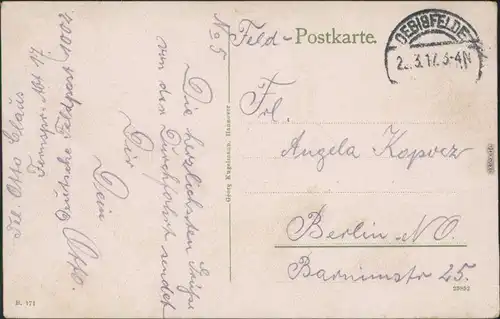 Feld-Postkarte.
OEBISFELDE
2.3.17. 3-4N
Frl.
Angela Kopvez
Berlin N.O.
Barnimstr 25.
23952
No 5
Die herzlichsten Grüße
von der Durchfahrt sendet
Dir
Dein
Otto.
Otto Claus
Deutsche Feldpost 1002
Georg Kugelmann, Hannover
R. 171